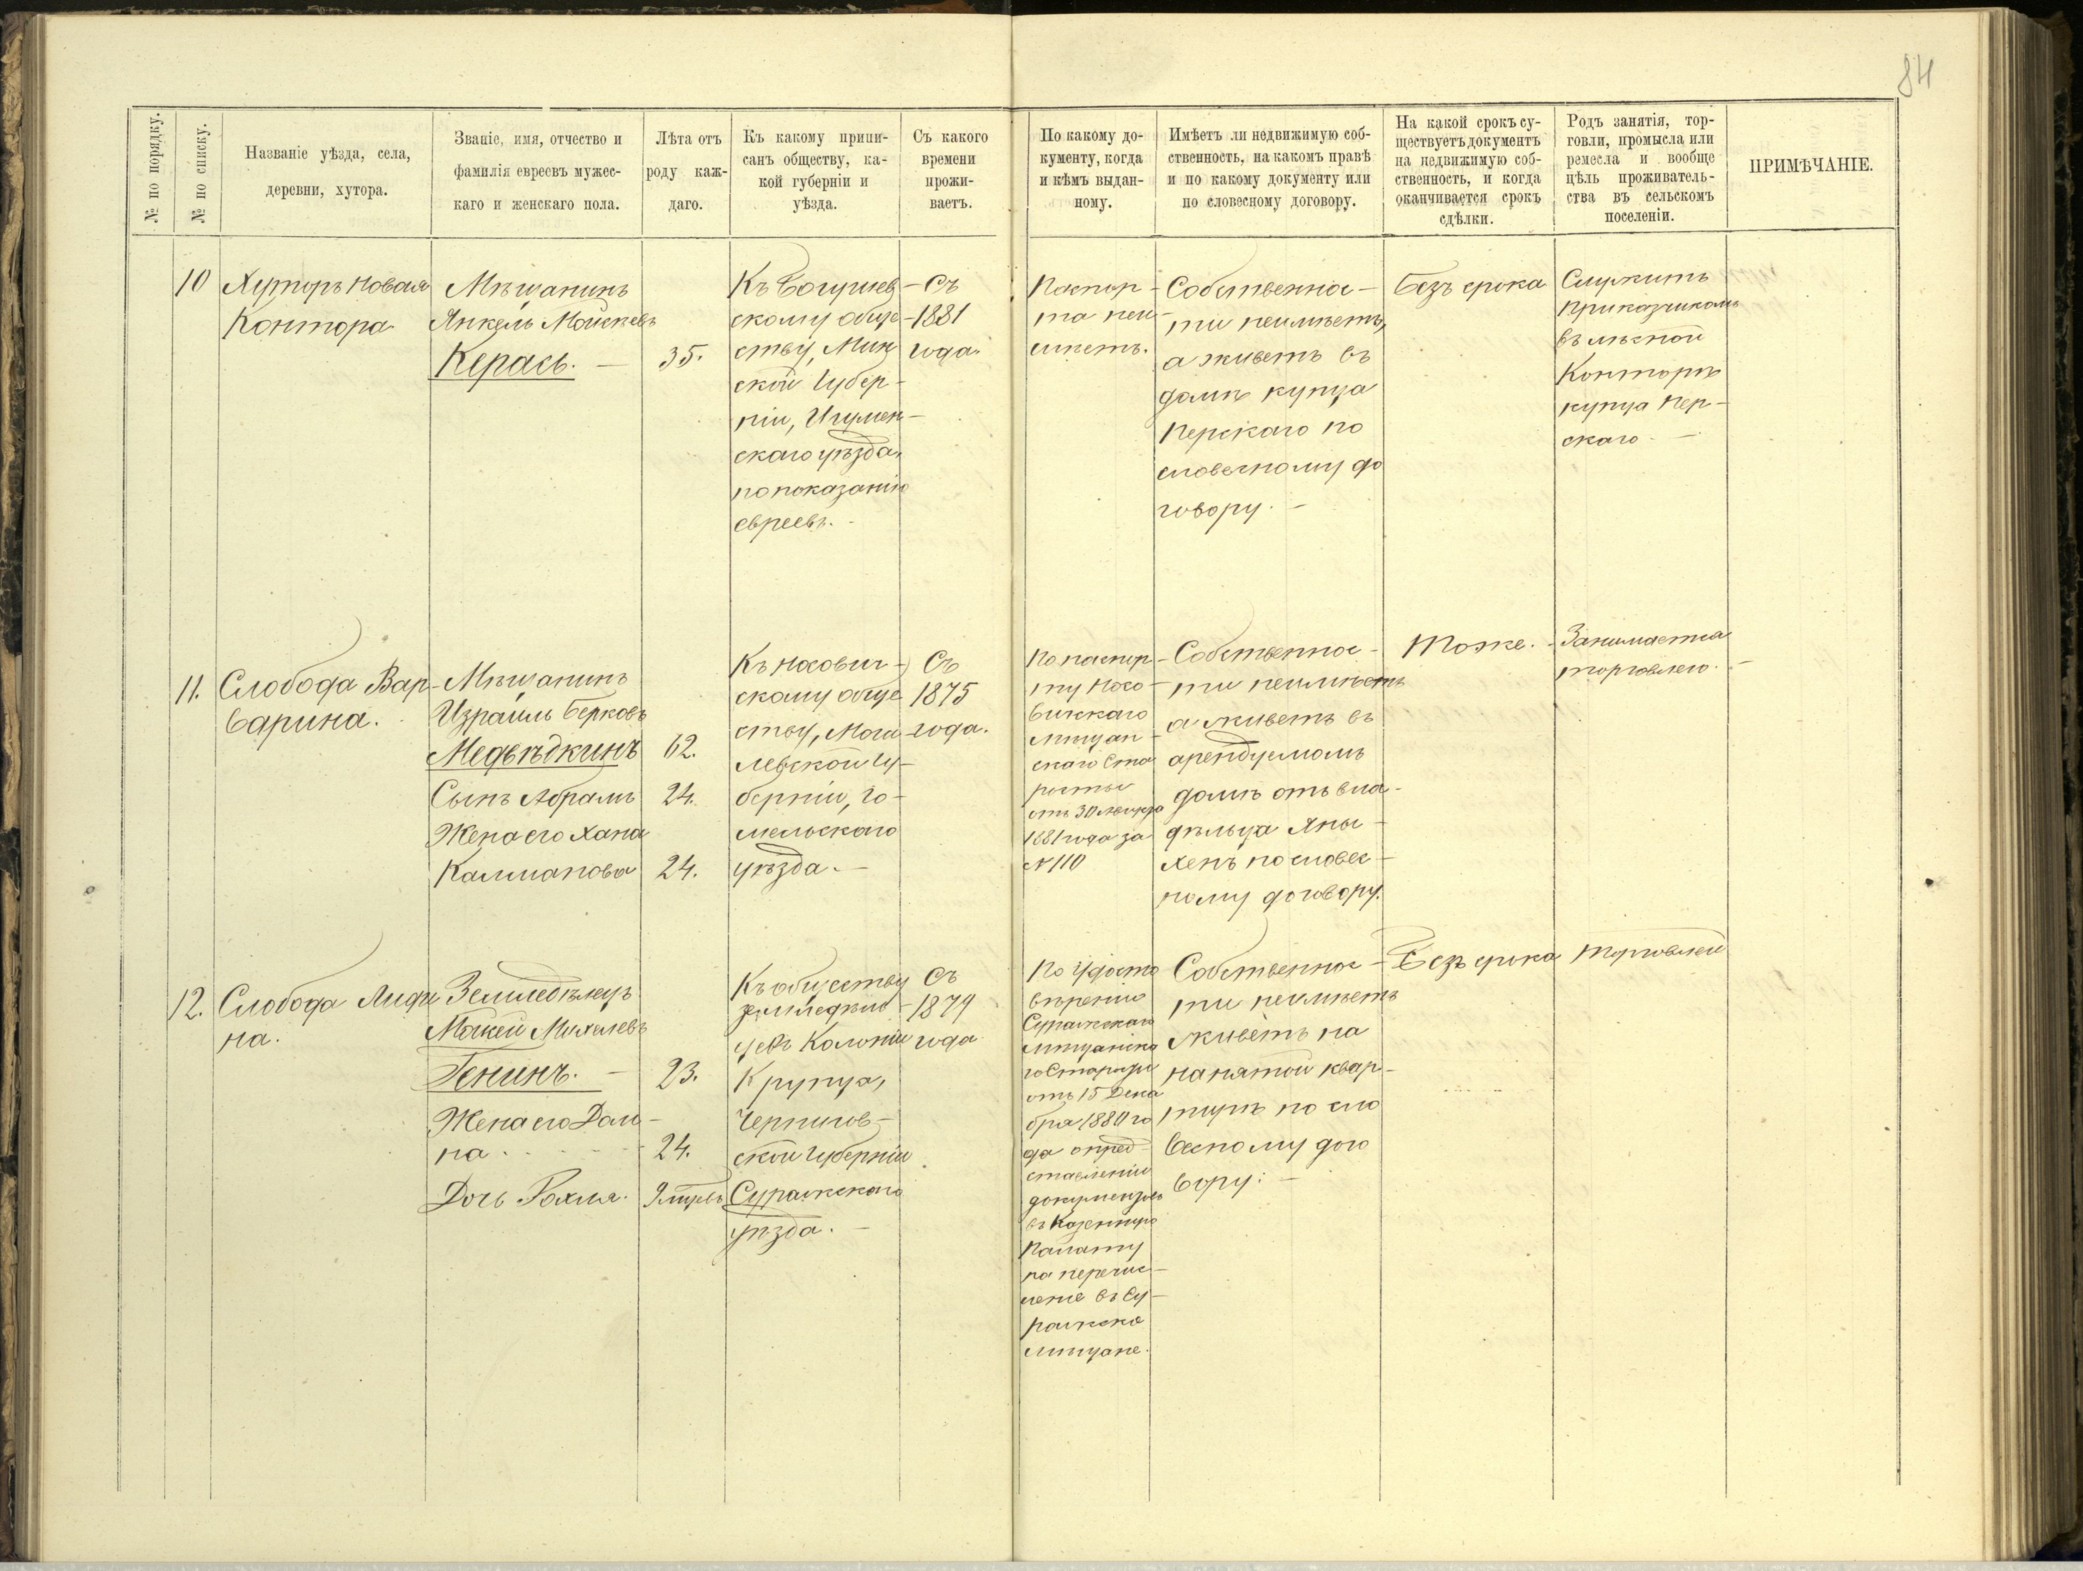 84
№ по порядку.
№ по списку.
Названіе уѣзда, села,
деревни, хутора.
Званіе, имя, отчество и
фамилія евреевъ мужес-
каго и женскаго пола.
Лѣта отъ
роду каж-
даго.
Къ какому припи-
санъ обществу, ка-
кой губерніи и
уѣзда.
Съ какого
времени
прожи-
ваетъ.
По какому до-
кументу, когда
и кѣмъ выдан-
ному.
Имѣетъ ли недвижимую соб-
ственность, на какомъ правѣ
и по какому документу или
по словесному договору.
На какой срокъ су-
ществуетъ документъ
на недвижимую соб-
ственность, и когда
оканчивается срокъ
сдѣлки.
Родъ занятія, тор-
говли, промысла или
ремесла и вообще
цѣль проживатель-
ства въ сельскомъ
поселеніи.
ПРИМѢЧАНІЕ.
10
Хуторъ Новая
Контора
Мѣщанинъ
Янкель Мойсеевъ
Керась. —
35.
Къ Богушев-
скому обще-
ству, Мин
ской Губер-
ніи, Игумен-
скаго уѣзда,
по показанію
евреевъ. -
Съ
1881
года.
Паспор-
та неи-
мѣетъ.
Собственнос-
ти неимѣетъ,
а живетъ въ
домѣ купца
Перскаго по
словесному до
говору. —
Безъ срока
Служитъ
Приказчикомъ
въ лѣсной
Конторѣ
купца Пер-
скаго —
11.
Слобода Вар-
варина.
Мѣщанинъ
Израиль Берковъ
Медвѣдкинъ
62.
Сынъ Абрамъ
24.
Жена его Хана
Калманова
24.
Къ Носович-
скому обще
ству, Моги-
левской Гу-
берніи, Го-
мельскаго
уѣзда. —
Съ
1875
года.
По паспор-
ту Носо-
вичскаго
мѣщан-
скаго Ста
росты
1881 года за
№ 110
Собственнос-
ти неимѣетъ
а живетъ въ
арендуемомъ
домѣ отъ вла-
дѣльца Яны-
хенъ по словес-
ному договору.
Тоже. -
Занимается
торговлею. —
12.
Слобода Лиди
на.
Земледѣлецъ
Мовшей Михелевъ
Генинъ. —
23.
Жена его Доли-
на
24.
Дочь Рохля.
9 мѣсяцевъ
Къ обществу
земледѣль-
цевъ Колоніи
Крупца,
Чернигов-
ской Губерніи
Суражскаго
уѣзда. —
Съ
1879
года
По Удосто
вѣренію
Суражскаго
мѣщанска
го Старосты
отъ 15 Дека
бря 1880 го
да о пред-
ставленіи
документовъ
въ Казенную
Палату
на перечис-
леніе въ Су-
ражскіе
мѣщане.
Собственнос-
ти неимѣетъ
живетъ на
нанятой квар-
тирѣ по сло
весному дого
вору. —
Безъ срока
Торговлей